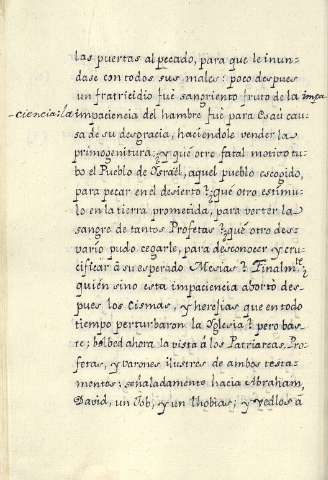 las puertas al pecado, para que le inun-
dase con todos sus males: poco despues
un fratricidio fuè sangriento fruto de la impa
-ciencia: la impaciencia del hambre fuè para Esaù cau-
sa de su desgracia, haciendole vender la
primogenitura; y què otro fatal motivo tu-
bo el Pueblo de Israèl, aquel pueblo escogido,
para pecar en el desierto? ¿Què otro estimu-
lo en la tierra prometida, para verter la
sangre de tantos Profetas? ¿què otro des-
vario pudo cegarle, para desconocer y cru-
cificar à su esperado Mesias? Finalmte ¿
quièn sino esta impaciencia abortò des-
pues los Cismas, y herejias que en todo
tiempo perturbaron la Iglesia? pero bàs-
te; bolbed ahora la vista à los Patriarcas, Pro-
fetas, y varones ilustres de ambos testa-
mentos; señaladamente hacia Abraham,
David, un Job, y un Thobias; y vedlos à